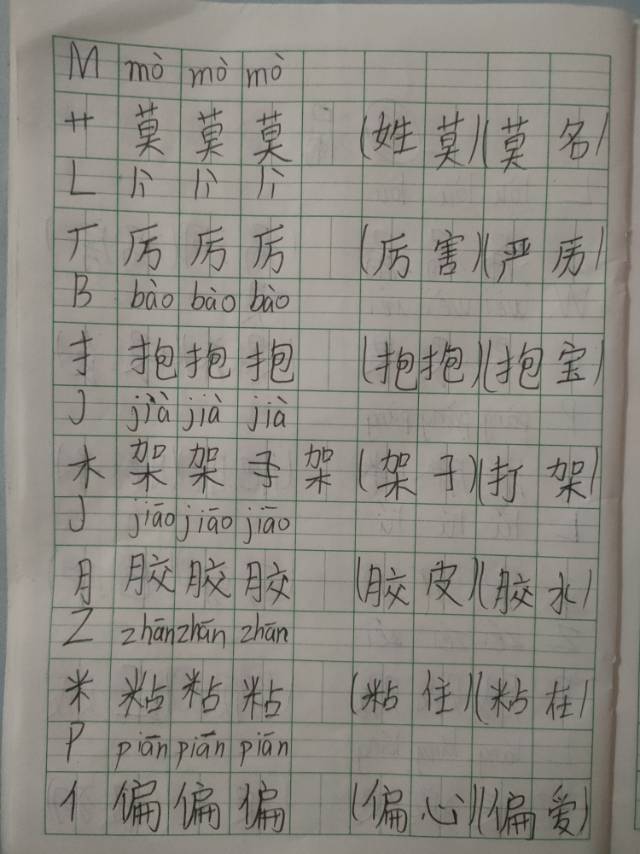 M mò mò mò
艹 莫 莫 莫 (姓 莫)(莫 名)
L lì lì lì
厂 厉 厉 厉 (厉 害)(严 厉)
B bào bào bào
扌 抱 抱 抱 (抱 抱)(抱 宝)
J jià jià jià
木 架 架 子 架 (架 子)(打 架)
J jiāo jiāo jiāo
月 胶 胶 胶 (胶 皮)(胶 水)
Z zhān zhān zhān
米 粘 粘 粘 (粘 住)(粘 在)
P piān piān piān
亻 偏 偏 偏 (偏 心)(偏 爱)